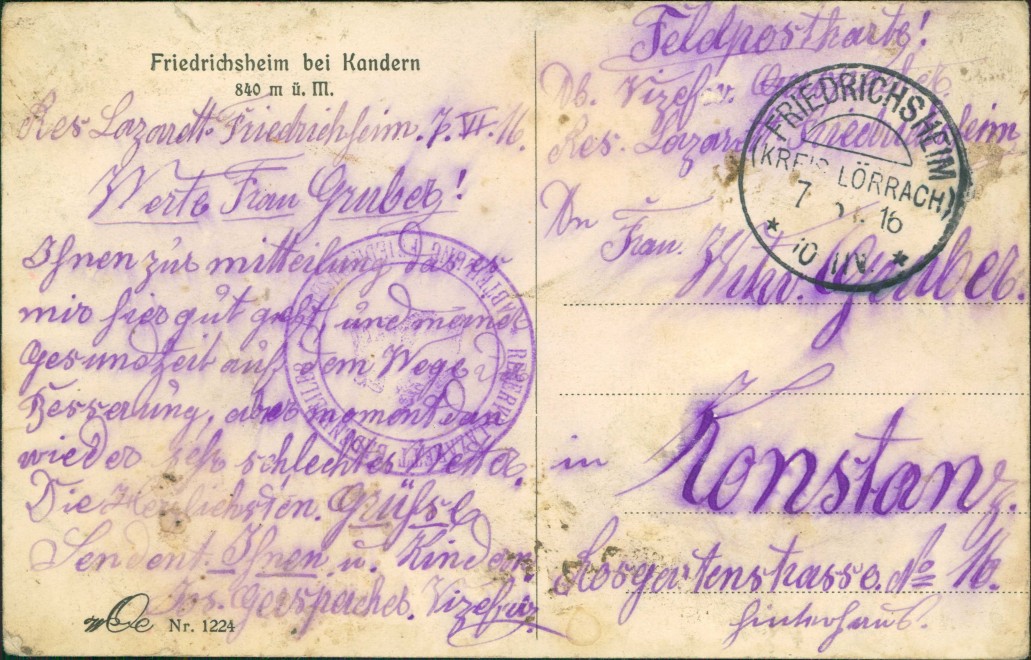 Friedrichsheim bei Kandern
840 m ü. M.
Res Lazarett Friedrichheim. 7. VI. 16.
Werte Frau Gruber!
Ihnen zur mitteilung das es
mir hier gut geht, und meine
Gesundheit auf dem Wege d.
Besserung, aber momentdan
wieder sehr schlechtes Wetter.
Die Herzlichsten. Grüsse
Sendent. Ihnen u. Kinder
Jos. Gerspacher. Vizefw.
Nr. 1224
Feldpostkarte!
Ob. Vizefw.
Res. Lazarett Friedrichheim
FRIEDRICHSHEIM
(KREIS LÖRRACH)
7 16
* 10 11V. *
An
Frau. Wtw. Gruber.
in Konstanz.
Rosgartenstrasse. No 16.
hinterhaus.